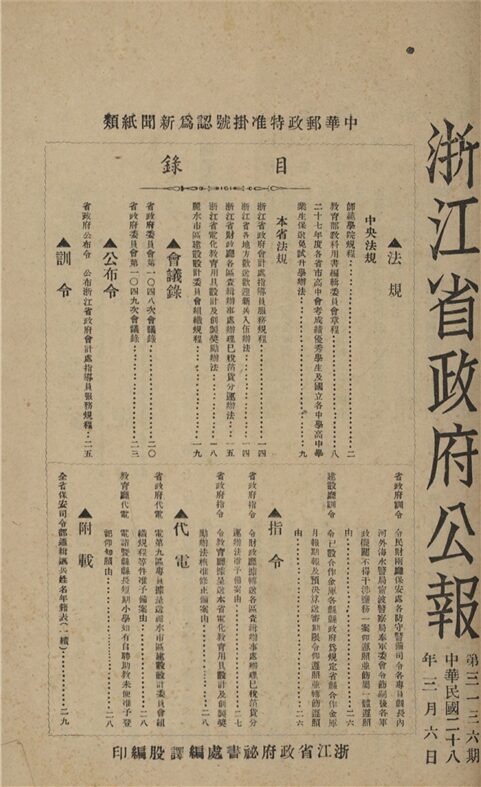 浙江省政府公報
第三一三六期
中華民國二十八
年三月六日
中華郵政特准掛號認爲新聞紙類
目錄
▲法規
中央法規
師範學院規程……二
教育部教科用書編輯委員會章程……八
二十七年度各省市高中會考成績優秀學生及國立各中學高中畢
業生保送免試升學辦法……九
本省法規
浙江省政府會計處指導員服務規程……一四
浙江省各地方歡送歡迎新兵入伍辦法……一四
浙江省財政廳各區查緝辦事處辦理已稅菸貨分運辦法……一五
浙江省電化教育用具設計及創製獎勵辦法……一八
麗水市區建設設計委員會組織規程……一九
▲會議錄
省政府委員會第一〇四八次會議錄……二〇
省政府委員會第一〇四九次會議錄……二三
▲公布令
省政府公布令 公布浙江省政府會計處指導員服務規程……二五
▲訓令
省政府訓令 令民財兩廳保安處各防守警備司令各專員縣長內
河外海水警局寧波警察局奉軍委會令飭嗣後各軍
政機關不得干涉鹽務一案仰遵照並飭屬一體遵照
由……二六
建設廳訓令 令已設合作金庫各縣縣政府爲規定省縣合作金庫
月報期報及預決算送審期限令仰遵照並轉飭遵照
由……二六
▲指令
省政府指令 令財政廳據轉送各區查緝辦事處辦理已稅菸貨分
運辦法准予備案由……二七
省政府指令 令教育廳據呈送本省電化教育用具設計及創製獎
勵辦法核准修正備案由……二八
▲代電
省政府代電 電第九區專員據呈送麗水市區建設設計委員會組
織規程等件准予備案由……二八
教育廳代電 電諸暨縣縣長短期小學如有自聘助教未便准予登
記仰知照由……二八
▲附載
全省保安司令部通緝諜共姓名年籍表(一續)……二九
浙江省政府祕書處編譯股編印